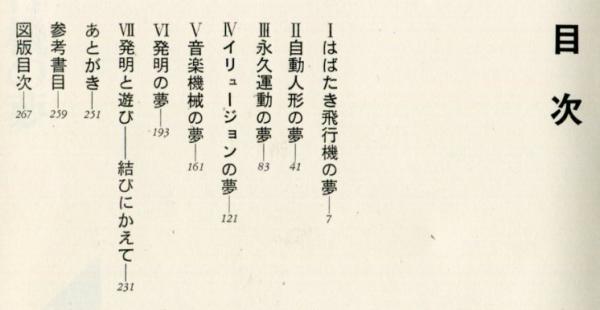 目次
Ⅰはばたき飛行機の夢—7
Ⅱ自動人形の夢—41
Ⅲ永久運動の夢—83
Ⅳイリュージョンの夢—121
Ⅴ音楽機械の夢—161
Ⅵ発明の夢—193
Ⅶ発明と遊び——結びにかえて—231
あとがき—251
参考書目—259
図版目次—267